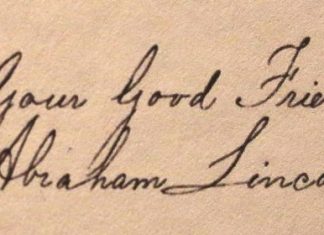 Your Good Frie
Abraham Linco